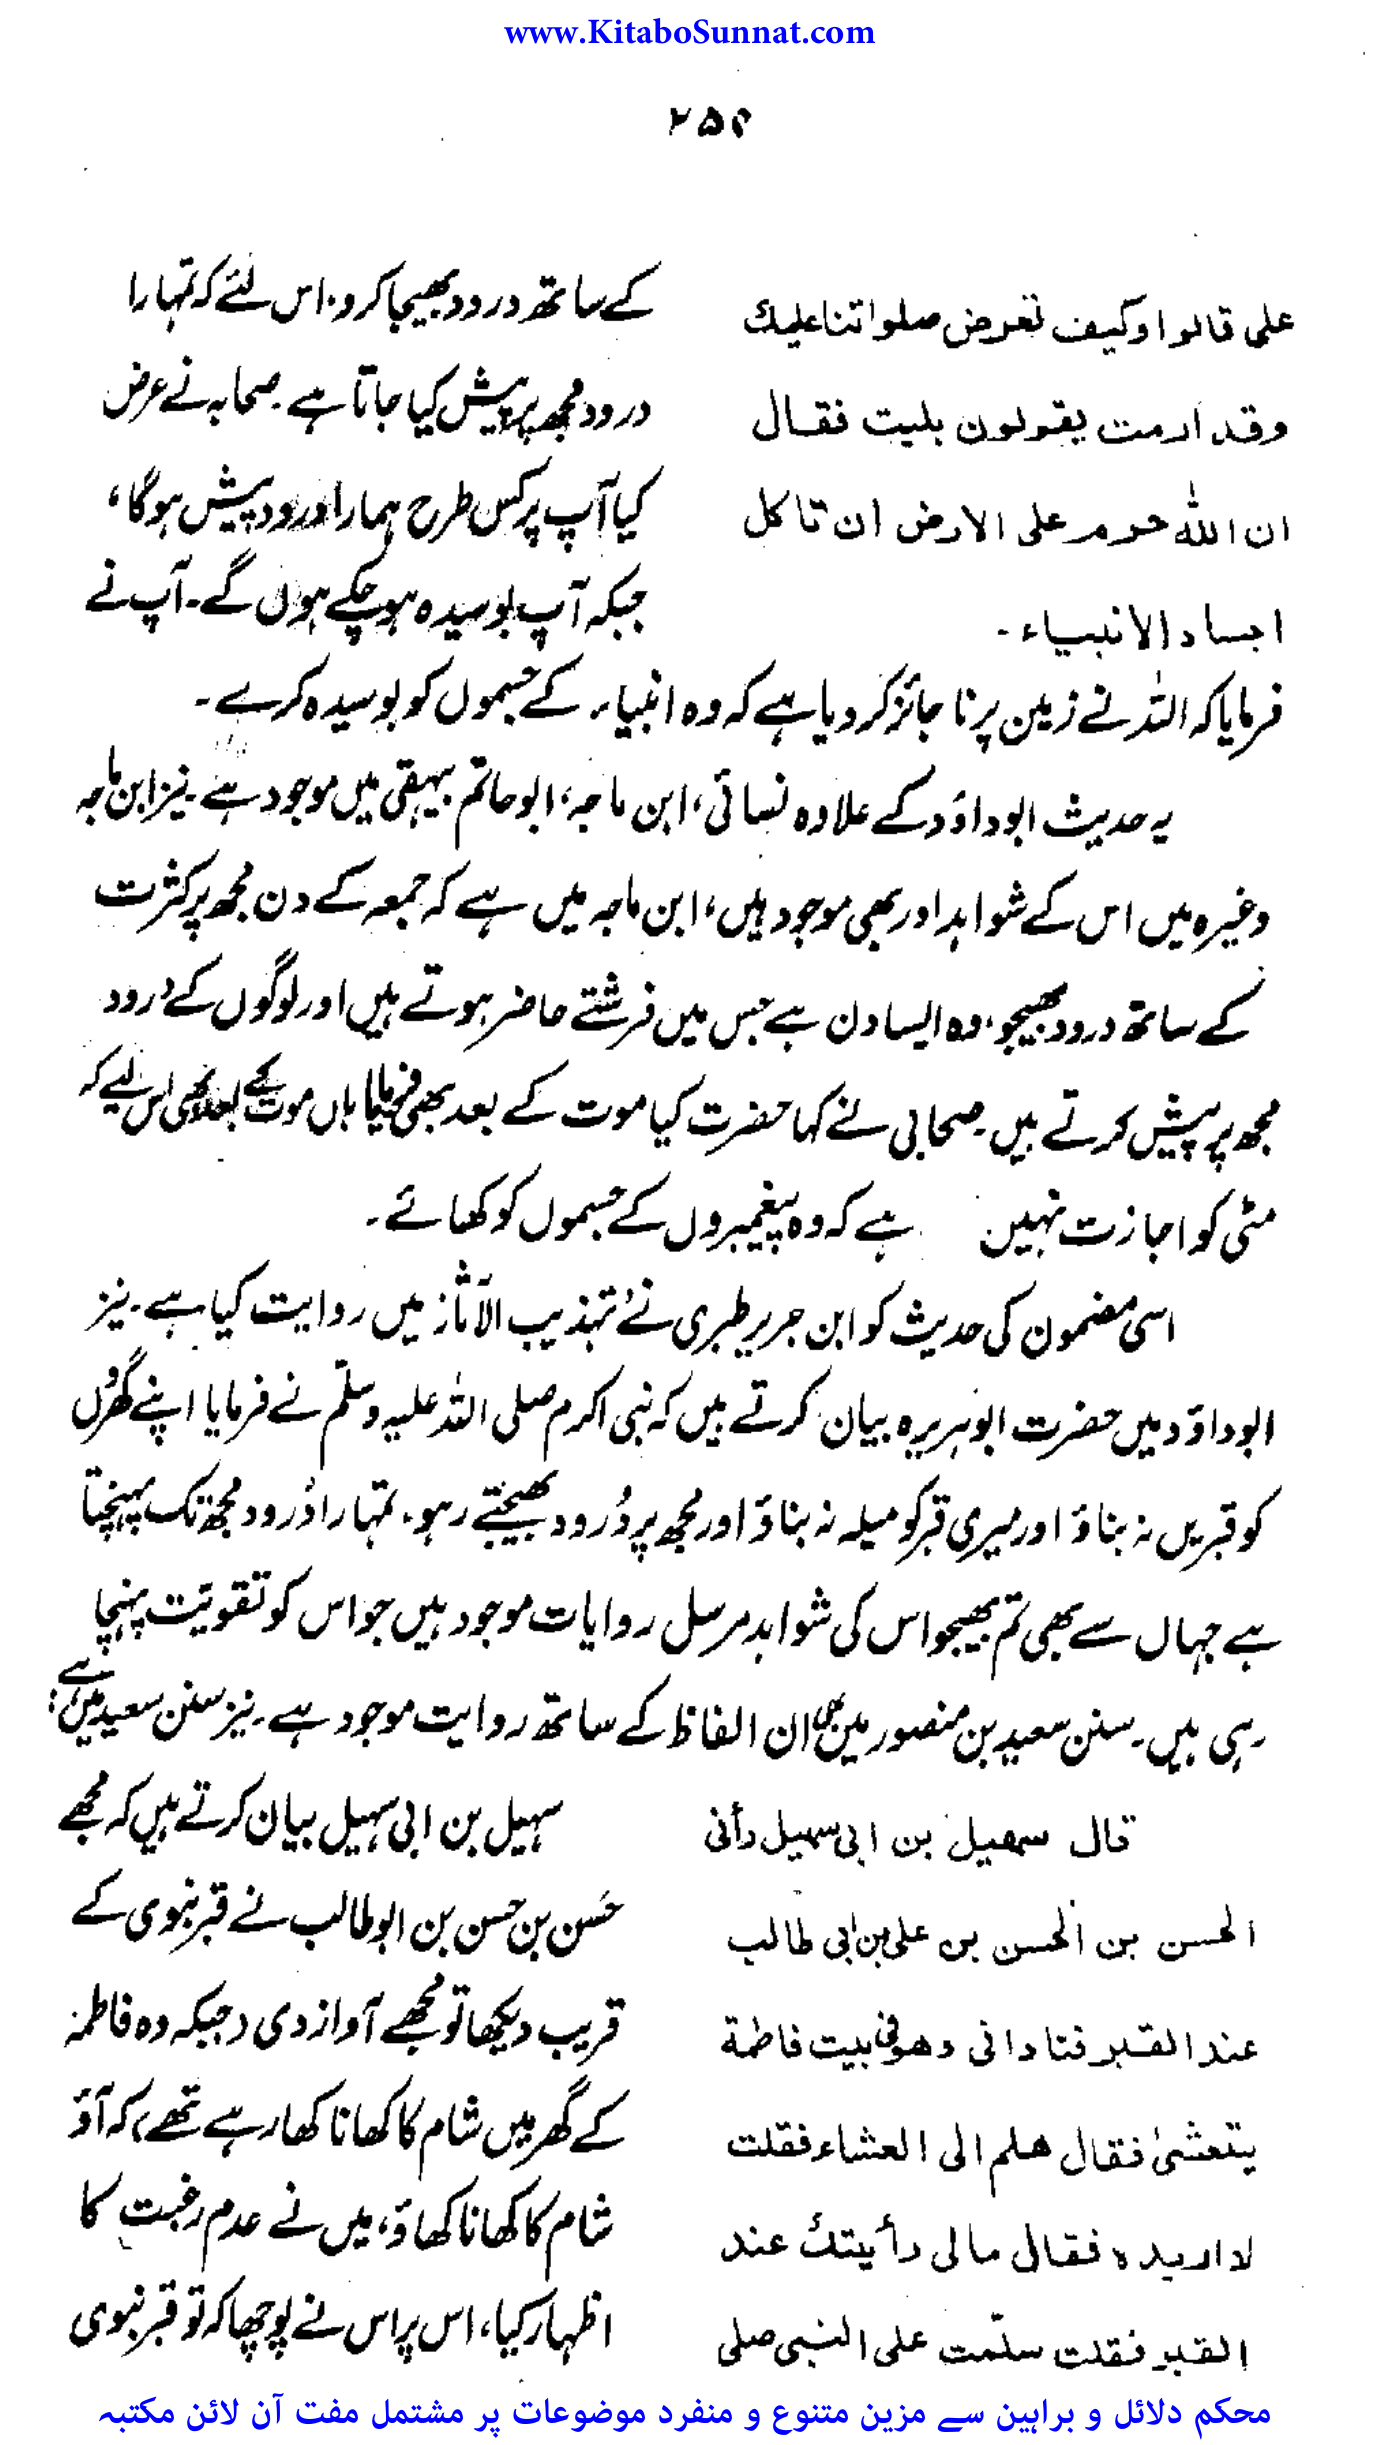 www.KitaboSunnat.com
۲۵۶
علی قالوا وکیف تعرض صلواتنا علیك
وقد ارمت یقولون بلیت فقال
ان الله حرم علی الارض ان تاکل
اجساد الانبیاء -
کے ساتھ درود بھیجا کرو. اس لئے کہ تمہارا
درود مجھ پر پیش کیا جاتا ہے۔ صحابہ نے عرض
کیا آپ پر کس طرح ہمارا درود پیش ہوگا،
جبکہ آپ بوسیدہ ہو چکے ہوں گے۔ آپ نے
فرمایا کہ اللہ نے زمین پر نا جائز کر دیا ہے کہ وہ انبیاء کے جسموں کو بوسیدہ کرے۔
یہ حدیث ابوداؤد کے علاوہ نسائی، ابن ماجہ، ابوحاتم بیہقی میں موجود ہے۔ نیز ابن ماجہ
وغیرہ میں اس کے شواہد اور بھی موجود ہیں، ابن ماجہ میں ہے کہ جمعہ کے دن مجھ پر کثرت
کے ساتھ درود بھیجو، وہ ایسا دن ہے جس میں فرشتے حاضر ہوتے ہیں اور لوگوں کے درود
مجھ پر پیش کرتے ہیں۔ صحابی نے کہا حضرت کیا موت کے بعد بھی فرمایا ہاں موت کے بعد بھی اس لیے کہ
مٹی کو اجازت نہیں ہے کہ وہ پیغمبروں کے جسموں کو کھائے۔
اسی مضمون کی حدیث کو ابن جریر طبری نے تہذیب الآثار میں روایت کیا ہے۔ نیز
ابوداؤد میں حضرت ابوہریرہ بیان کرتے ہیں کہ نبی اکرم صلی اللہ علیہ وسلم نے فرمایا اپنے گھروں
کو قبریں نہ بناؤ اور میری قبر کو میلہ نہ بناؤ اور مجھ پر دُرود بھیجتے رہو، تمہارا دُرود مجھ تک پہنچتا
ہے جہاں سے بھی تم بھیجو اس کی شواہد مرسل روایات موجود ہیں جو اس کو تقویت پہنچا
رہی ہیں۔ سنن سعید بن منصور میں بھی ان الفاظ کے ساتھ روایت موجود ہے۔ نیز سنن سعید میں ہے:
قال سھیل بن ابی سہیل رأنی
الحسن بن الحسن بن علی بن ابی طالب
عند القبر فنادانی وھو فی بیت فاطمة
یتعشیٰ فقال ھلم الی العشاء فقلت
لا اریدہ فقال مالی رأیتك عند
القبر فقلت سلّمت علی النبی صلی
سہیل بن ابی سہیل بیان کرتے ہیں کہ مجھے
حَسن بن حسن بن ابوطالب نے قبر نبوی کے
قریب دیکھا تو مجھے آواز دی (جبکہ وہ فاطمہ
کے گھر میں شام کا کھانا کھا رہے تھے) کہ آؤ
شام کا کھانا کھاؤ، میں نے عدم رغبت کا
اظہار کیا، اس پر اس نے پوچھا کہ تو قبر نبوی
محکم دلائل و براہین سے مزین متنوع و منفرد موضوعات پر مشتمل مفت آن لائن مکتبہ